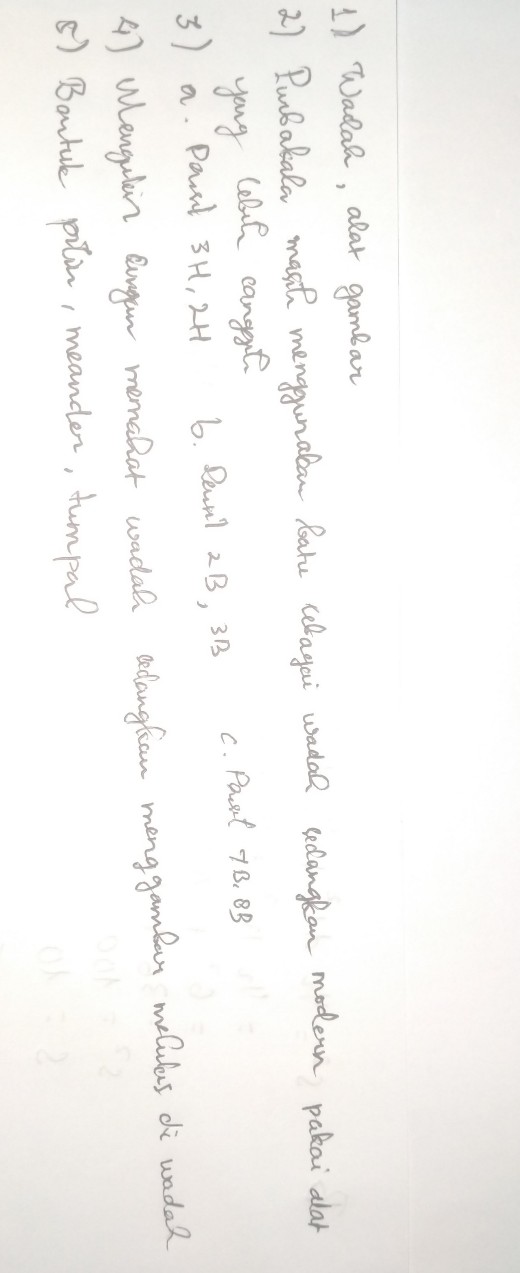 1) Wadah, alat gambar
2) Purbakala masih menggunakan batu sebagai wadah sedangkan modern pakai alat
yang lebih canggih
3) a. Pensil 3H, 2H b. Pensil 2B, 3B c. Pensil 7B, 8B
4) Mengukir dengan memahat wadah sedangkan menggambar melukis di wadah
5) Bentuk pilin, meander, tumpal